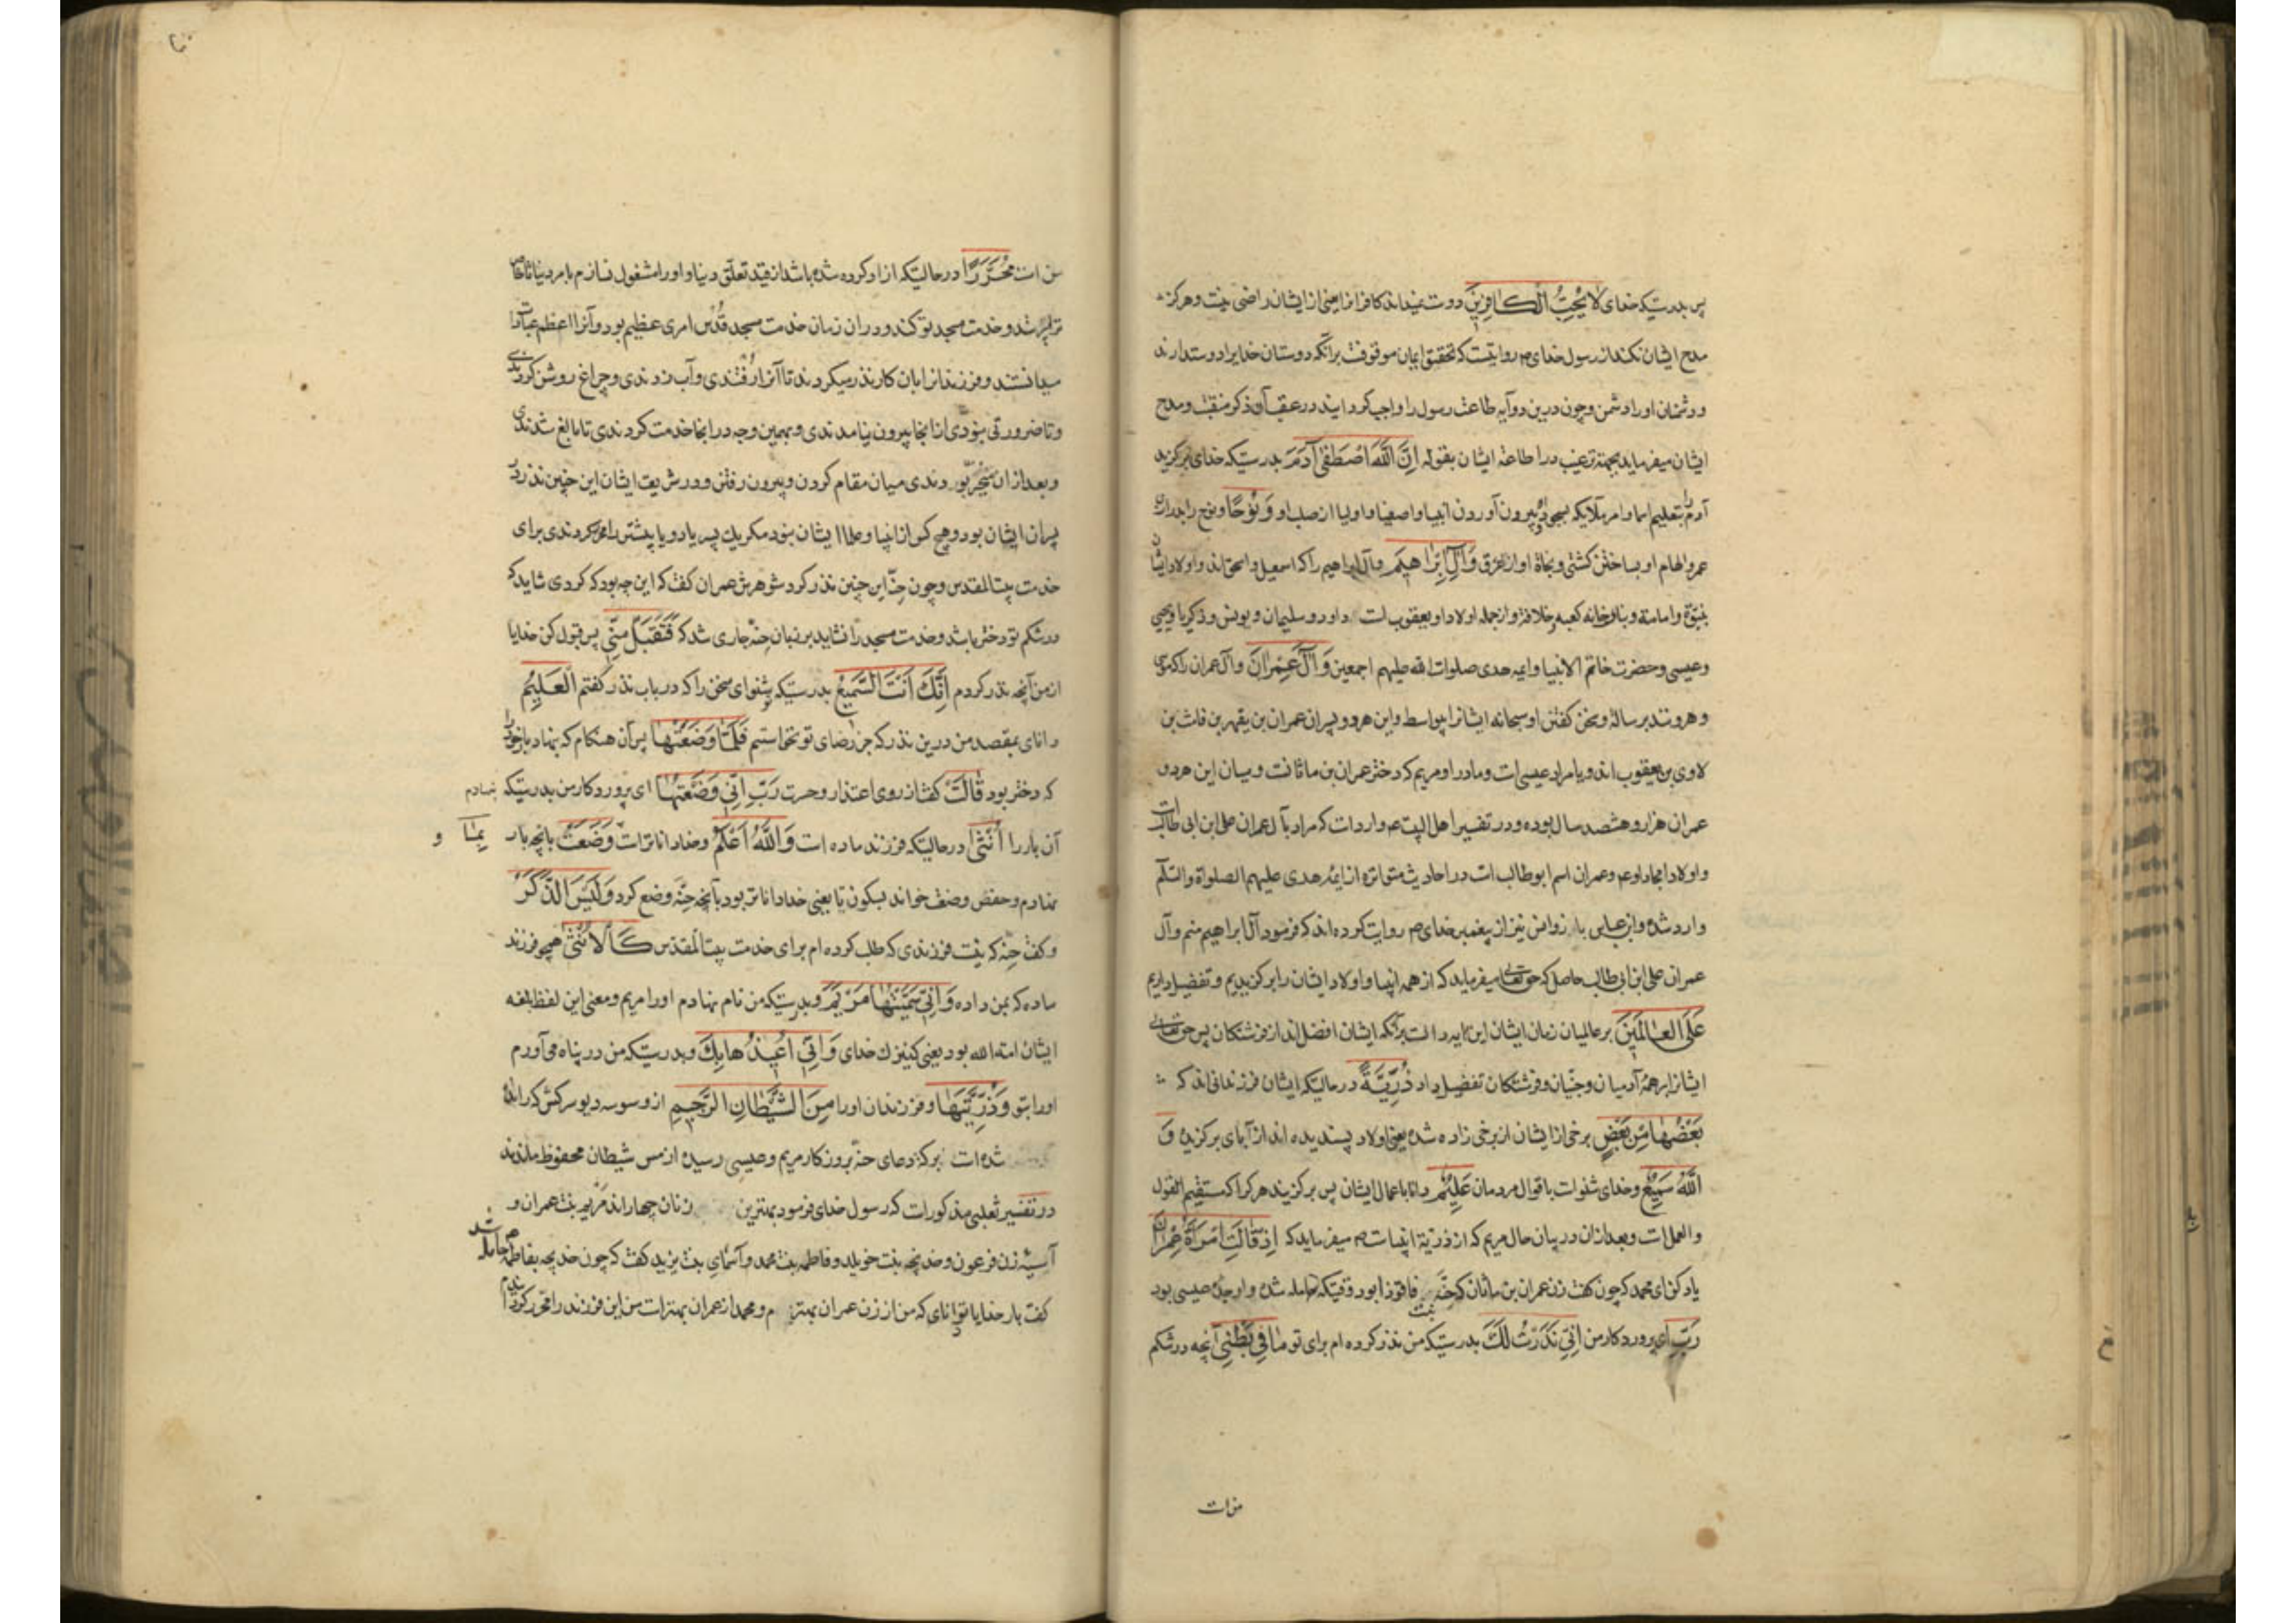 پس بدرستیکه خدای لَا يُحِبُّ الْكَافِرِينَ دوست نمیداند کافرانرا یعنی از ایشان راضی نیست و هرگز
مدح ایشان نکند از رسول خدای ص روایتست که تحقیق ایمان موقوفست برآنکه دوستان خدایرا دوست دارند
و دشمنان او را دشمن و چون درین دو آیه طاعت رسول را واجب گردانید در عقب آن ذکر منقبت و مدح
ایشان میفرماید بجهة ترغیب در اطاعة ایشان بقوله اِنَّ اللّٰهَ اصْطَفٰى آدَمَ بدرستیکه خدای برگزید
آدم را بتعلیم اسما و امر ملایکه بسجود و بیرون آوردن انبیا و اصفیا و اولیا از صلب او وَنُوحًا و نوح را بدرازی
عمر و الهام او بساختن کشتی و نجاة او از غرق وَآلَ اِبْرَاهِيمَ وآل ابراهیم را که اسمعیل و اسحق اند و اولاد ایشان
بنبوّة و امامة و بناء خانه کعبه و خلافة و از جمله اولاد او یعقوب است داود و سلیمان و یونس و ذکریا و یحیی
و عیسی و حضرت خاتم الانبیا و ایمه هدی صلوات الله علیهم اجمعین وَآلَ عِمْرَانَ وآل عمران را که موسی
و هرونند برسالة و سخن گفتن او سبحانه ایشانرا بیواسطه و این هر دو پسران عمران بن یقهر بن قاث بن
لاوی بن یعقوب اند و یا مراد عیسی است و مادر او مریم که دختر عمران بن ماثانست و میان این هر دو
عمران هزار و هشصد سال بوده و در تفسیر اهل البیت ع وارد است که مراد بآل عمران علی ابن ابی طالب است
و اولاد امجاد او ع و عمران اسم ابو طالب است در احادیث متواتره از ایمه هدی علیهم الصلواة والسلم
وارد شده و ابن عباس نیز از پیغمبر خدای ص روایت کرده اند که فرمود آل ابراهیم منم و آل
عمران علی ابن ابی طالب حاصل که حق تعالی میفرماید که از همه انبیا و اولاد ایشان را برگزیدیم و تفضیل دادیم
عَلَى الْعَالَمِينَ بر عالمیان زمان ایشان این آیه دالست برآنکه ایشان افضل اند از فرشتگان پس حق تعالی
ایشانرا بر همهٔ آدمیان و جنّیان و فرشتگان تفضیل داد ذُرِّيَّةً درحالتیکه ایشان فرزندانی اند که
بَعْضُهَا مِنْ بَعْضٍ برخی از ایشان از برخی زاده شده یعنی اولاد پسندیده اند از آبای برگزیده وَ
اللّٰهُ سَمِيعٌ و خدای شنواست باقوال مردمان عَلِيمٌ دانا باعمال ایشان پس برگزیند هر کرا که مستقیم القول
والعمل است و بعد ازان در بیان حال مریم که از ذریة انبیاست میفرماید که اِذْ قَالَتِ امْرَاَةُ عِمْرَانَ
یاد کن ای محمد که چون گفت زن عمران بن ماثان که حنّه بنت فاقوزا بود وقتیکه حامله شده و او جدهٔ عیسی بود
رَبِّ ای پروردگار من اِنِّي نَذَرْتُ لَكَ بدرستیکه من نذر کرده ام برای تو مَا فِي بَطْنِي آنچه در شکم
من است
من است مُحَرَّرًا درحالتیکه ازاد کرده شده باشد از قید تعلّق دنیا و او را مشغول نسازم بامر دنیا تا خاص
ترا پرستد و خدمت مسجد تو کند و در ان زمان خدمت مسجد قُدُس امری عظیم بود و آنرا اعظم عبادات
میدانستند و فرزندانرا بان کار نذر میکردند تا آنرا رُفتندی و آب زدندی و چراغ روشن کردندی
و تا ضرورتی نبودی از انجا بیرون نیامدندی و بهمین وجه در انجا خدمت کردندی تا بالغ شدندی
و بعد ازان مخیّر بودندی میان مقام کردن و بیرون رفتن و در شریعت ایشان این چنین نذر در
پسران ایشان بود و هیچ کس از انبیا و علما ایشان نبود مگر یک پسر یا دو یا بیشتر را محرّر کردندی برای
خدمت بیت المقدس و چون حنّه این چنین نذر کرد شوهرش عمران گفت که این چه بود که کردی شاید که
در شکم تو دختر باشد و خدمت مسجد را نشاید بر زبان حنّه جاری شد که فَتَقَبَّلْ مِنِّي پس قبول کن خدایا
از من آنچه نذر کردم اِنَّكَ اَنْتَ السَّمِيعُ بدرستیکه تو شنوای سخن را که در باب نذر گفتم الْعَلِيمُ
دانای بمقصد من درین نذر که جز رضای تو نخواستم فَلَمَّا وَضَعَتْهَا پس آن هنگام که بنهاد بار خود را
که دختر بود قَالَتْ گفت از روی اعتذار و حسرت رَبِّ اِنِّي وَضَعْتُهَا ای پروردگار من بدرستیکه بنهادم
آن بار را اُنْثٰى درحالتیکه فرزند ماده است وَاللّٰهُ اَعْلَمُ و خدا داناتر است بِمَا وَضَعَتْ بانچه بار و
نهادم و حفص وضعت خواند بسکون تا یعنی خدا داناتر بود بآنچه حنّه وضع کرد وَلَيْسَ الذَّكَرُ
و گفت حنّه که نیست فرزندی که طلب کرده ام برای خدمت بیت المقدس كَالْاُنْثٰى همچو فرزند
ماده که بمن داده وَاِنِّي سَمَّيْتُهَا مَرْيَمَ و بدرستیکه من نام نهادم او را مریم و معنی این لفظ بلغه
ایشان امة الله بود یعنی کنیزک خدای وَاِنِّي اُعِيذُهَا بِكَ و بدرستیکه من در پناه می آورم
او را بتو وَذُرِّيَّتَهَا و فرزندان او را مِنَ الشَّيْطَانِ الرَّجِيمِ از وسوسه دیو سرکش که رانده
شده است برکهٔ دعای حنّه بروزکار مریم و عیسی رسیده از مس شیطان محفوظ ماندند
در تفسیر ثعلبی مذکور است که رسول خدای فرمود بهترین زنان چهار اند مریم بنت عمران و
آسیه زن فرعون و خدیجه بنت خویلد و فاطمه بنت محمد و آسمای بنت یزید گفت که چون خدیجه بفاطمه ص حامله شد
گفت بار خدایا تو دانای که من از زن عمران بهترم و محمد از عمران بهتر است من این فرزند را محرّر کردم